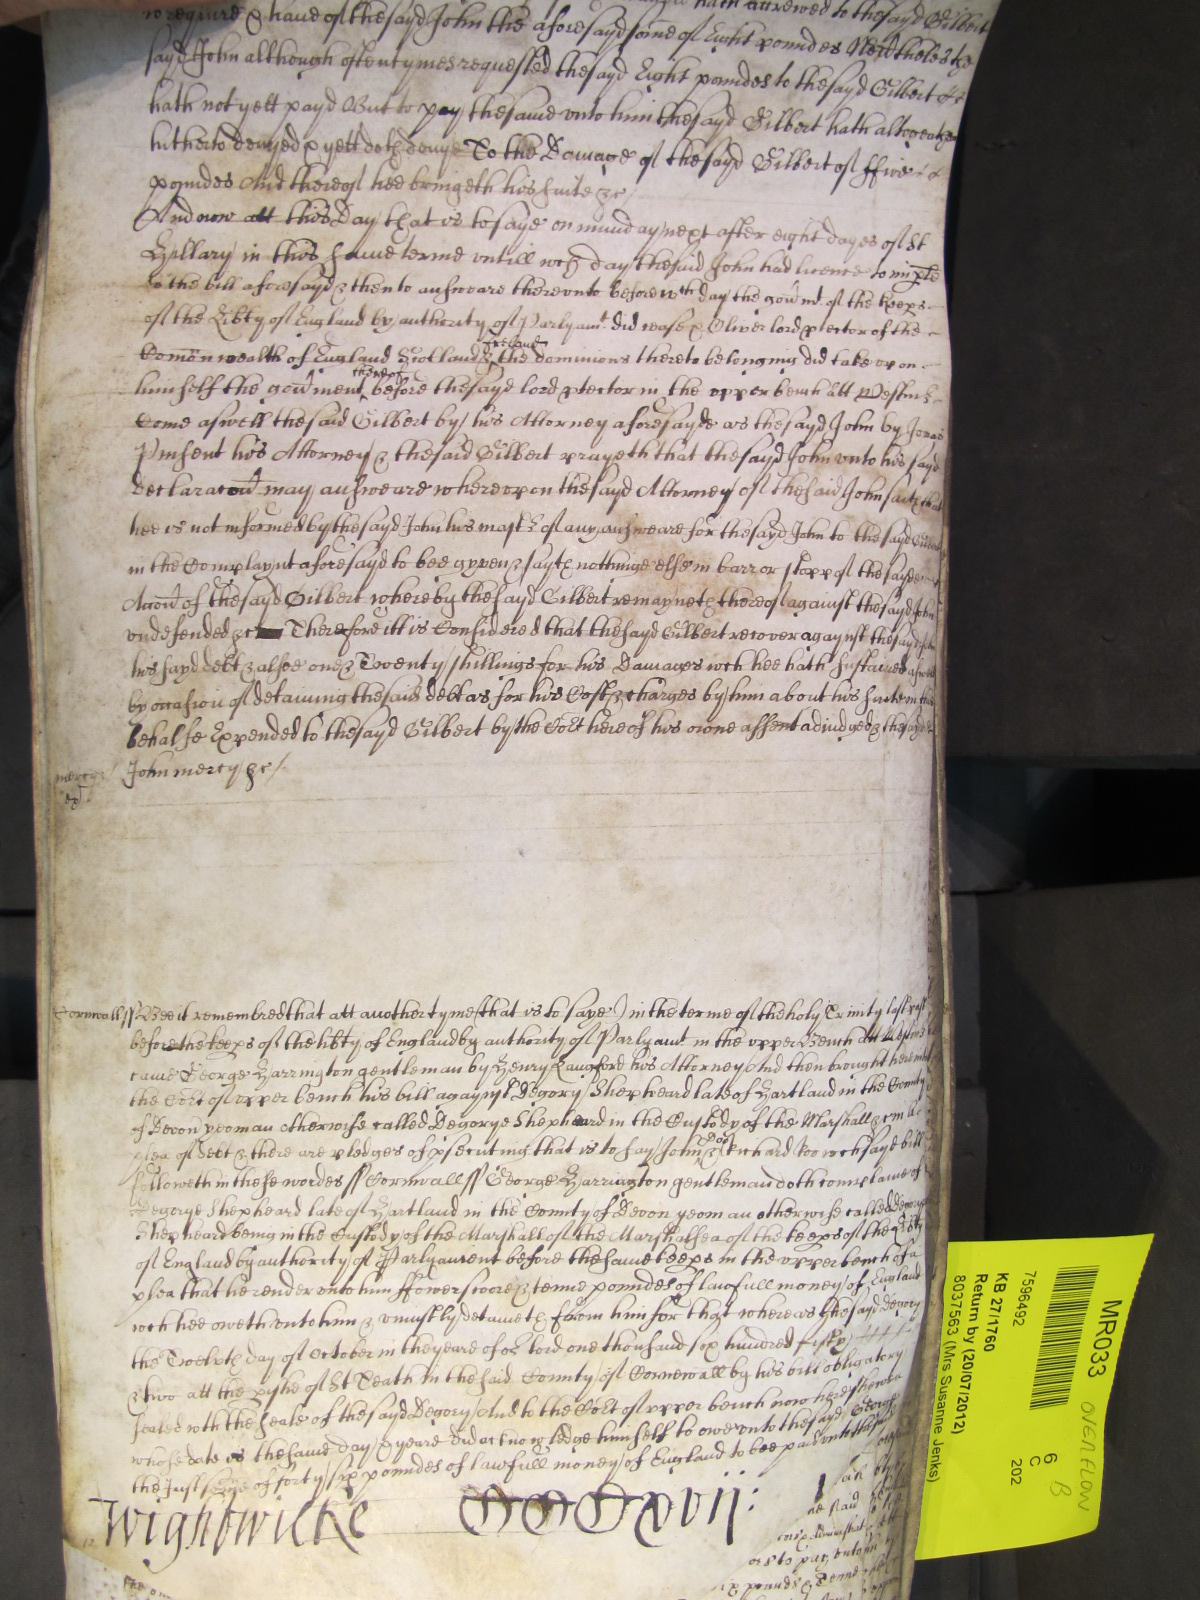 to require & have of the sayd John the aforesayd some of Eight poundes Neverthelesse the
sayd John although oftentymes requested the sayd Eight poundes to the sayd Gilbert
hath not yett payd But to pay the same unto him the sayd Gilbert hath altogether
hitherto denyed & yett doth denye To the Damage of the sayd Gilbert of ffive
poundes And thereof hee bringeth his suite &c
And now att this Day that is to saye on munday next after eight dayes of St
Hillary in this same terme untill wch day the said John had licence to imple
to the bill aforesayd & then to answeare thereunto before wch day the govmt. of the keeps
of the Libty of England by authority of Parlyamt. did cease & Oliver lord ptector of the
Comon wealth of England Scotland & Ireland & the dominions thereto belonging did take upon
himself the govment thereof before the sayd lord ptector in the upper bench att Westmr
Come aswell the said Gilbert by his Attorney aforesayde as the sayd John by Jonas
Pinsent his Attorney & the said Gilbert prayeth that the sayd John unto his sayd
declaracon may answeare whereupon the sayd Attorney of the said John saith that
hee is not informed by the sayd John his master of any answeare for the sayd John to the sayd Gilbert
in the Complaynt aforesayd to bee gyven & sayth nothinge else in barr or stopp of the sayde
Accon of the sayd Gilbert whereby the sayd Gilbert remayneth thereof against the sayd John
undefended &c Therefore itt is Considered that the sayd Gilbert recover agaynst the sayd John
his sayd debt & alsoe one & Twenty shillings for his Damages wch hee hath sustained aswell
by occasion of detaining the said debt as for his Costs & charges by him about his suite in this
behalfe Expended to the sayd Gilbert by the Cort here of his owne assent adiudged & the sayd
mercy
John mercy &c
Cornwall ss Bee it remembred that att another tyme (that is to saye) in the terme of the holy Trinity last past
before the keeps of the libty of England by authority of Parlyamt in the upper Bench att Westmr
came George Harrington gentleman by Henry Langford his Attorney And then brought here into
the Cort of upper bench his bill agaynst Degory Shepheard late of Hartland in the County
of Devon yeoman otherwise called Degorye Shepheard in the Custody of the Marshall &c in a
plea of debt & there are pledges of psecuting that is to say John Doe & Richard Roo wch sayd bill
followeth in these wordes ss Cornwall ss George Harrington gentleman doth complaine of
Degorye Shepheard late of Hartland in the County of Devon yeoman otherwise called Degorye
Shepheard being in the Custody of the Marshall of the Marshalsea of the keeps of the libty
of England by authority of Parlyament before the same keeps in the upper bench of a
plea that he render unto him ffower score & tenne poundes of lawfull money of England
wch hee oweth unto him & uniustly detaineth from him for that whereas the sayd Degory
the Twelvth day of October in the yeare of or lord one thousand six hundred fifty
& two att the pishe of St Teath in the said County of Cornewall by his bill obligatory
sealed wth the seale of the sayd Degory And to the Cort of upper bench now here shewen
whose date is the same day & yeare did acknowledge himself to owe unto the sayd George
the Just some of forty six poundes of lawfull money of England to bee paid unto the sayd
Wightwicke CCCCxvii:
MR033
OVERFLOW
7596492
6
B
C
202
KB 27/1760
Return by (20/07/2012)
8037563 (Mrs Susanne Jenks)